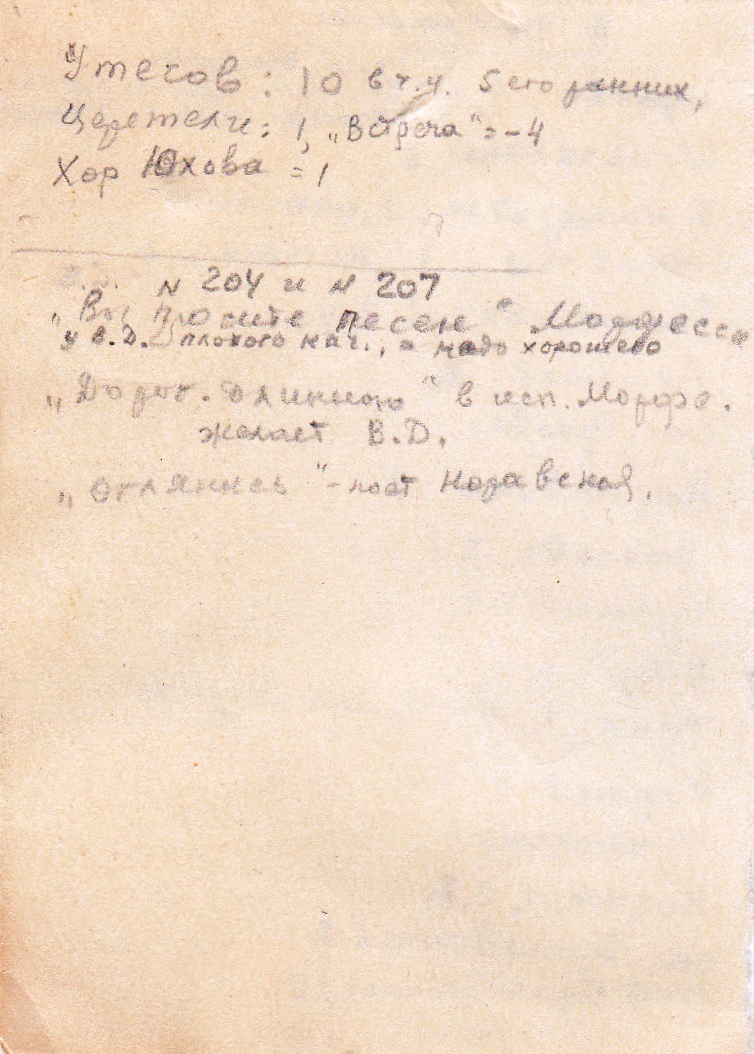 Утесов: 10 в т.ч. 5 его ранних,
Церетели: 1, „Встреча" = -4
Хор Юхова = 1
N 204 и N 207
„Вы просите песен" Морфесси
у В.Д. плохого кач., а надо хорошего
„Дорог. длинною" в исп. Морфе.
желает В.Д.
„Оглянись" - поет